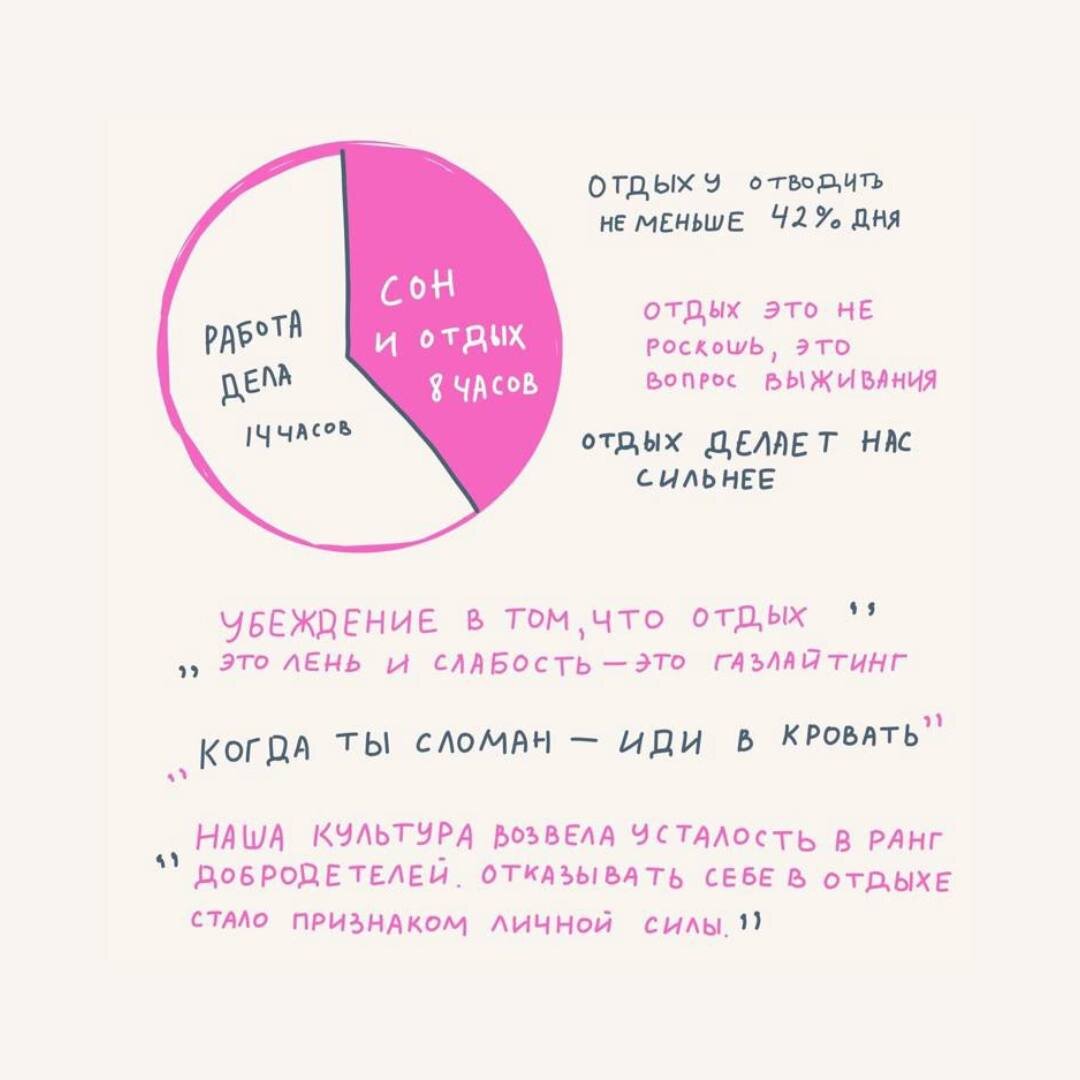 РАБОТА
ДЕЛА
14 ЧАСОВ
СОН
И ОТДЫХ
8 ЧАСОВ
ОТДЫХУ ОТВОДИТЬ
НЕ МЕНЬШЕ 42% ДНЯ
ОТДЫХ ЭТО НЕ
РОСКОШЬ, ЭТО
ВОПРОС ВЫЖИВАНИЯ
ОТДЫХ ДЕЛАЕТ НАС
СИЛЬНЕЕ
УБЕЖДЕНИЕ В ТОМ, ЧТО ОТДЫХ “
„ ЭТО ЛЕНЬ И СЛАБОСТЬ — ЭТО ГАЗЛАЙТИНГ
„ КОГДА ТЫ СЛОМАН — ИДИ В КРОВАТЬ”
“ НАША КУЛЬТУРА ВОЗВЕЛА УСТАЛОСТЬ В РАНГ
ДОБРОДЕТЕЛЕЙ. ОТКАЗЫВАТЬ СЕБЕ В ОТДЫХЕ
СТАЛО ПРИЗНАКОМ ЛИЧНОЙ СИЛЫ.”